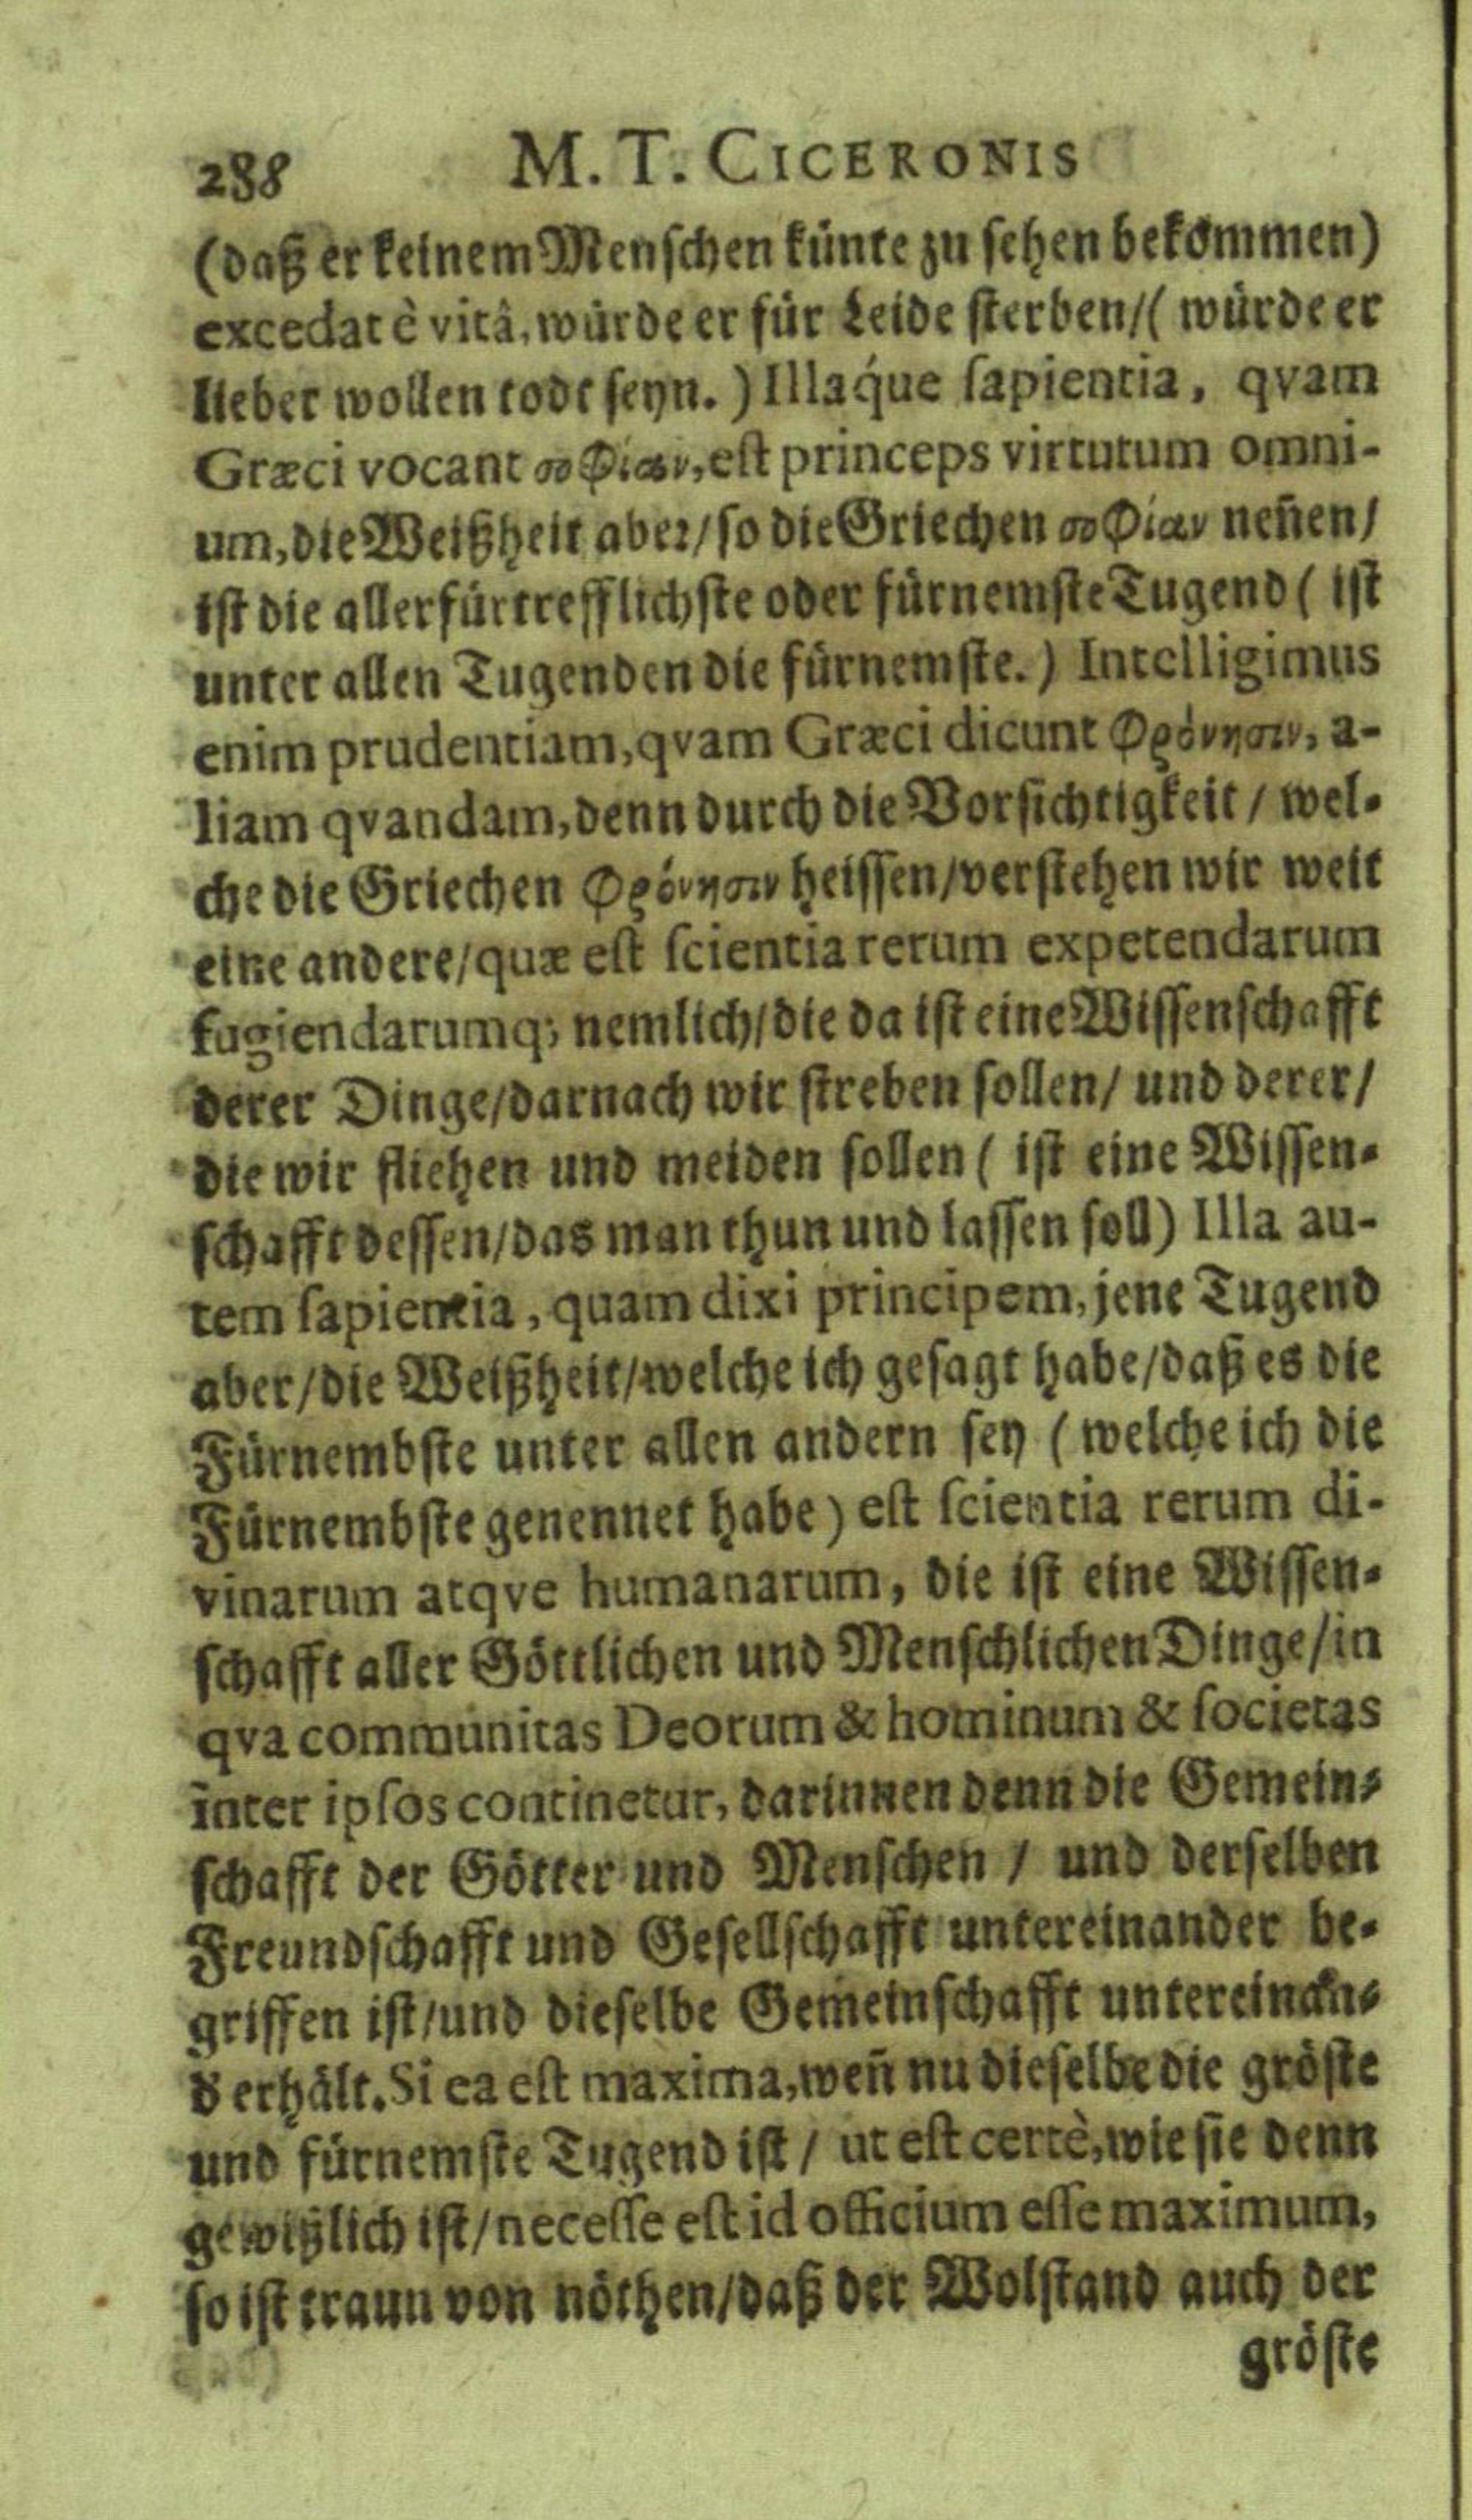 288 M. T. CICERONIS
(daß er keinem Menſchen künte zu ſehen bekommen)
excedat è vitâ, würde er für Leide ſterben/( würde er
lieber wollen todt ſeyn. ) Illáque ſapientia, qvam
Græci vocant σοφίαν, eſt princeps virtutum omni-
um, die Weißheit aber/ ſo die Griechen σοφίαν neñen/
iſt die allerfürtrefflichſte oder fürnemſte Tugend ( iſt
unter allen Tugenden die fürnemſte. ) Intelligimus
enim prudentiam, qvam Græci dicunt φρόνησιν, a-
liam qvandam, denn durch die Vorſichtigkeit / wel-
che die Griechen φρόνησιν heiſſen/ verſtehen wir weit
eine andere/ quæ eſt ſcientia rerum expetendarum
fugiendarumq; nemlich/ die da iſt eine Wiſſenſchafft
derer Dinge/ darnach wir ſtreben ſollen/ und derer/
die wir fliehen und meiden ſollen ( iſt eine Wiſſen-
ſchafft deſſen/ das man thun und laſſen ſoll) Illa au-
tem ſapientia, quam dixi principem, jene Tugend
aber/ die Weißheit/ welche ich geſagt habe/ daß es die
Fürnembſte unter allen andern ſey ( welche ich die
Fürnembſte genennet habe ) eſt ſcientia rerum di-
vinarum atqve humanarum, die iſt eine Wiſſen-
ſchafft aller Göttlichen und Menſchlichen Dinge/ in
qva communitas Deorum & hominum & ſocietas
inter ipſos continetur, darinnen denn die Gemein-
ſchafft der Götter und Menſchen / und derſelben
Freundſchafft und Geſellſchafft untereinander be-
griffen iſt/ und dieſelbe Gemeinſchafft untereinan-
d erhält. Si ea eſt maxima, weñ nu dieſelbe die gröſte
und fürnemſte Tugend iſt / ut eſt certè, wie ſie denn
gewißlich iſt/ neceſſe eſt id officium eſſe maximum,
ſo iſt traun von nöthen/ daß der Wolſtand auch der
gröſte